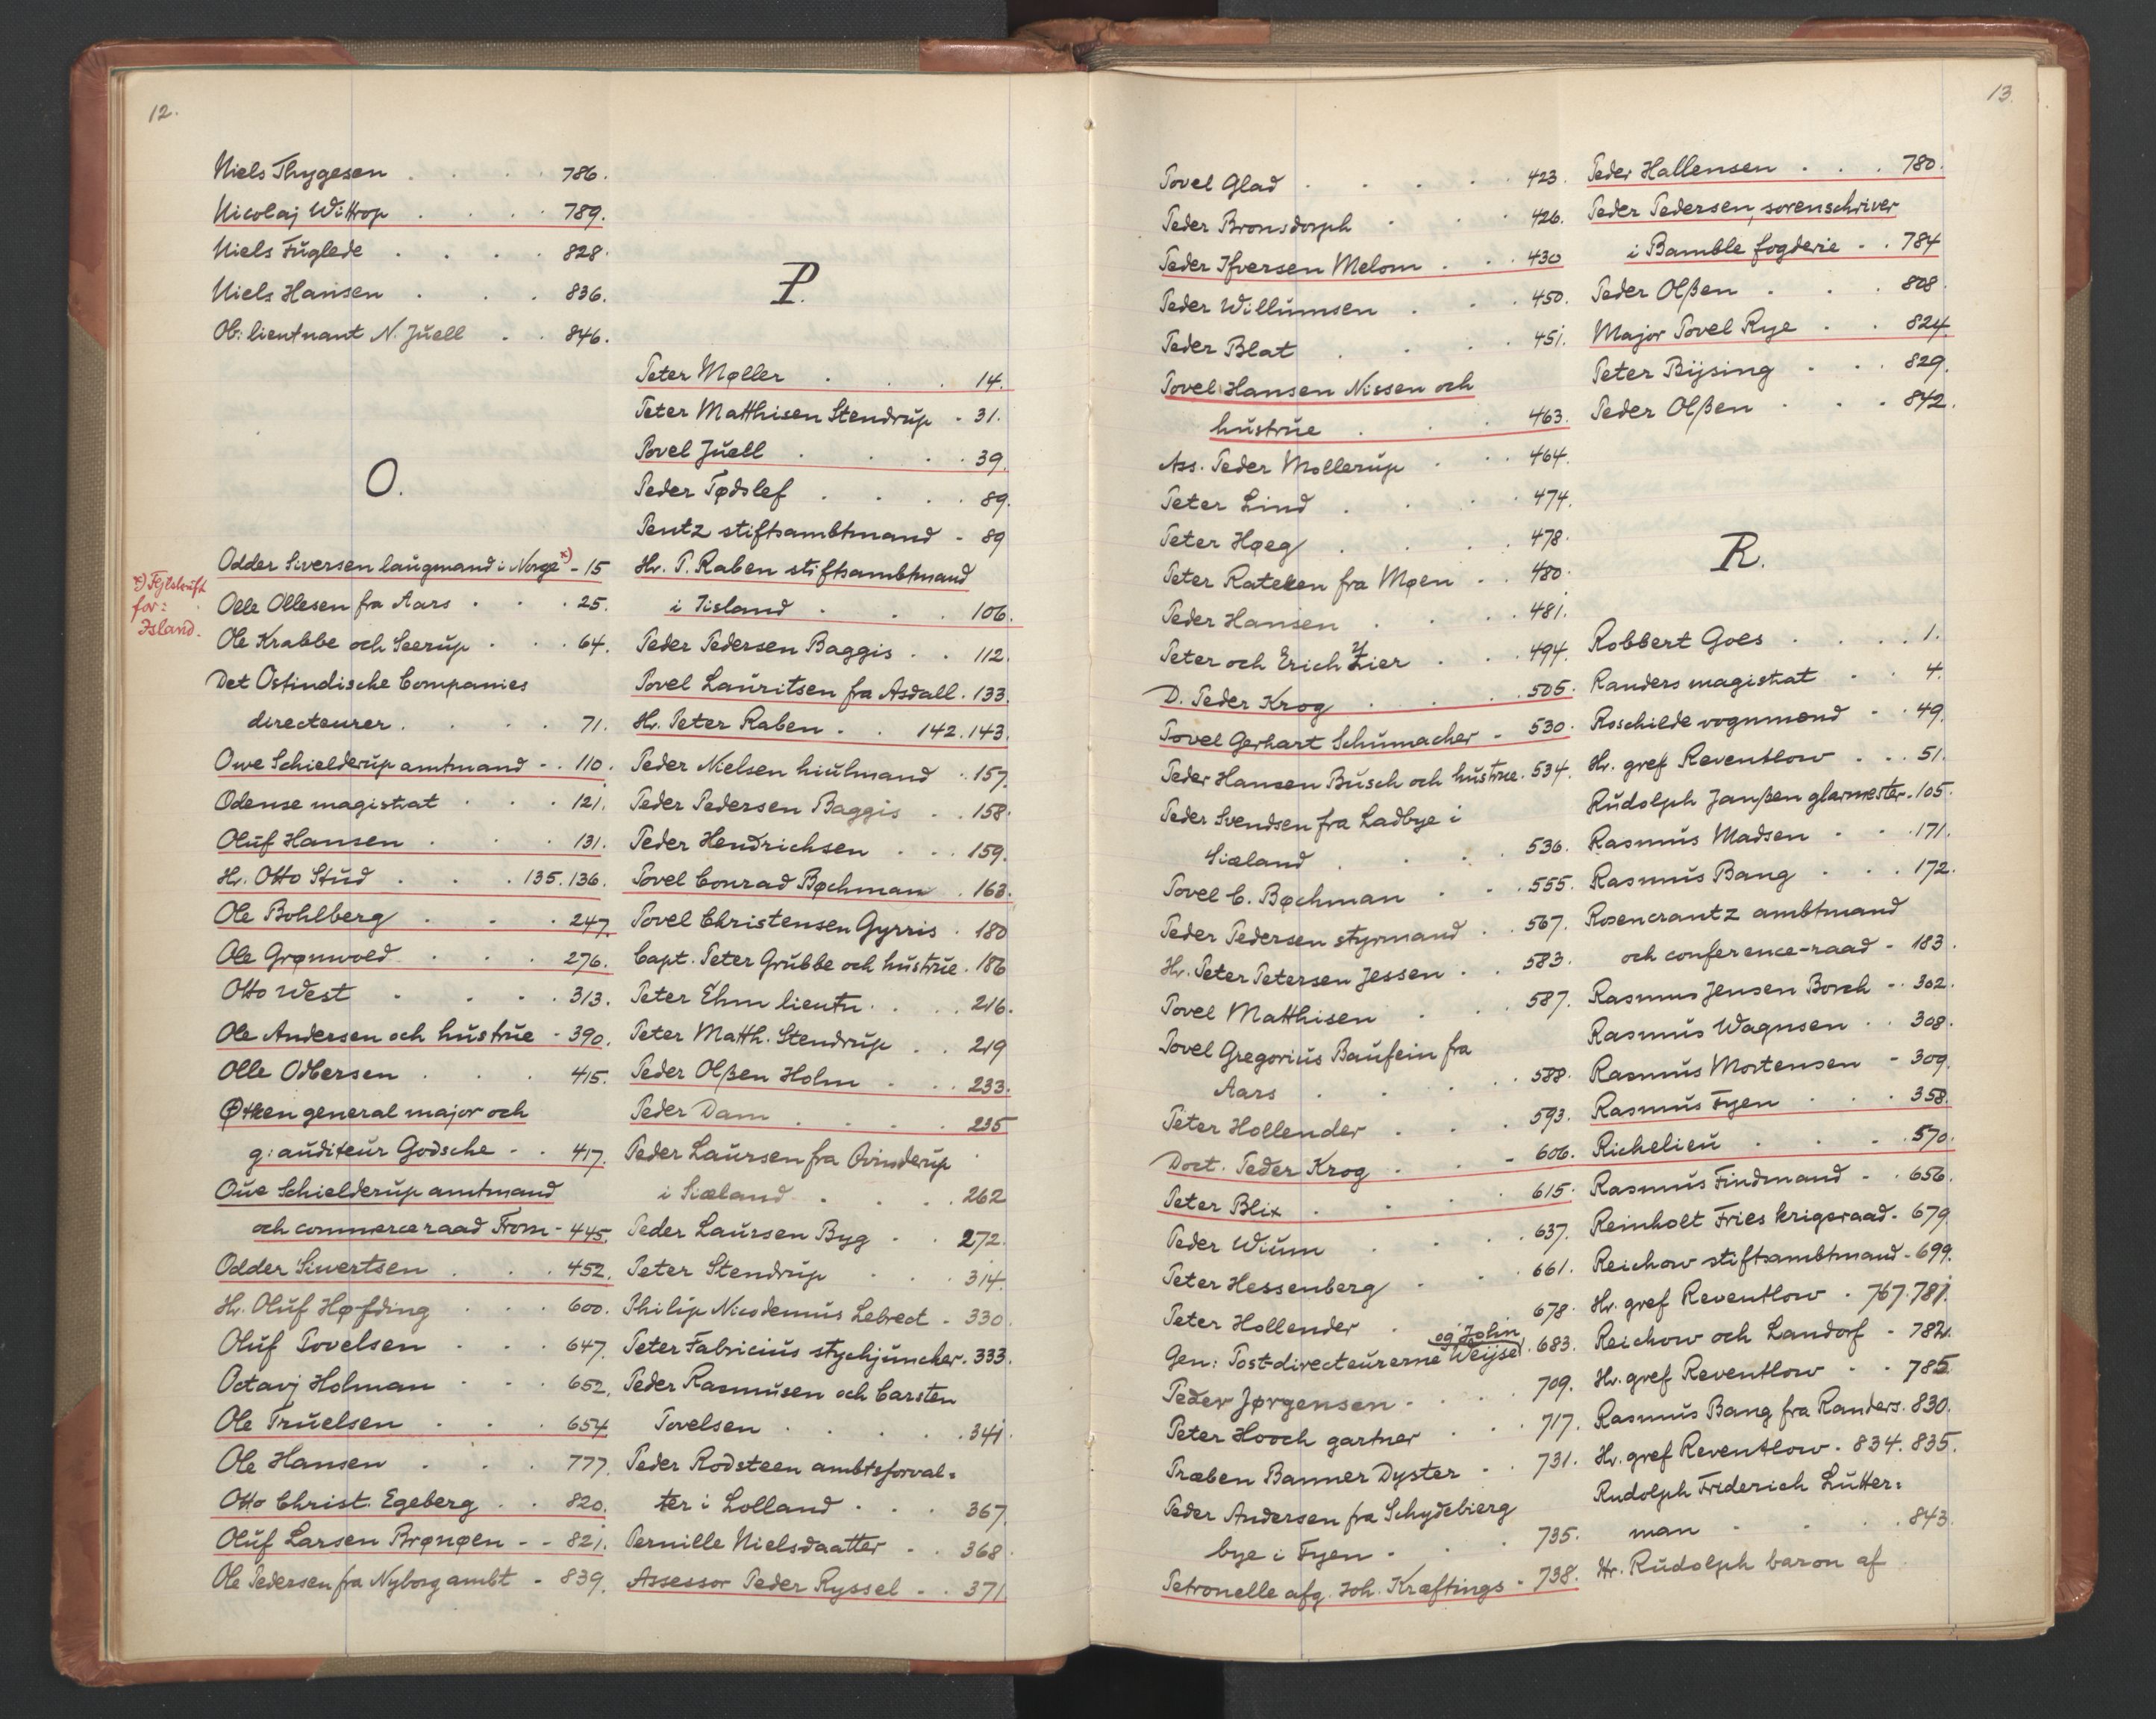 12.
Niels Thygesen . . . 786.
Nicolaj Wittrop . . . . 789.
Niels Fuglede . . . . 828.
Niels Hansen . . . 836.
Ob: lieutnant N. Juell . . 846.
O.
Odder Siversen laugmand i Norge x) - 15
x) Fejlskrift
for:
Island.
Olle Ollesen fra Aars . . . 25.
Ole Krabbe och Seerup . . . 64.
Det Ostindische Companies
directeurer . . . . 71.
Owe Schielderup amtmand - . 110.
Odense magistrat . . . 121.
Oluf Hansen . . . 131.
Hr. Otto Stud . . . 135. 136.
Ole Bohlberg . . . 247.
Ole Grønwold . . . 276.
Otto West . . . . 313.
Ole Andersen och hustrue - 390.
Olle Odbersen . . . 415.
Øtken general major och
g: auditeur Godsche - . 417.
Oue Schielderup amtmand
och commerceraad From - 445.
Odder Siwertsen . . . 452.
Hr. Oluf Høfding . . . 600.
Oluf Povelsen . . . 647.
Octavj Holman . . . 652.
Ole Truelsen . . . 654
Ole Hansen . . . 777.
Otto Christ. Egeberg . . 820.
Oluf Larsen Brønøen - - 821.
Ole Pedersen fra Nyborg ambt - 839.
P.
Peter Møller . . . 14.
Peter Matthisen Stendrup - 31.
Povel Juell . . . . 39.
Peder Tødslef . . . . 89.
Pentz stiftsambtmand - 89
Hr. P. Raben stiftsambtmand
i Iisland . . . 106.
Peder Pedersen Baggis . . 112.
Povel Lauritsen fra Asdall . 133.
Hr. Peter Raben . . 142. 143.
Peder Nielsen hiulmand . 157.
Peder Pedersen Baggis . . 158.
Peder Hendrichsen . . . 159.
Povel Conrad Bøchman . 163.
Povel Christensen Gyrris . 180
Capt. Peter Grubbe och hustrue . 186
Peter Ehm lieutn. . . . 216.
Peter Matth. Stendrup . . 219
Peder Olßen Holm . . . 233.
Peder Dam . . . . 235
Peder Laursen fra
i Siæland . . . 262
Peder Laursen Byg . . 272.
Peter Stendrup . . . 314.
Philip Nicodemus Lebrect - 330.
Peter Fabricius stychjuncher . 333.
Peder Rasmusen och Carsten
Povelsen . . . . 341.
Peder Rodsteen ambtsforval=
ter i Lolland . . . 367.
Pernille Nielsdaatter . . 368.
Assessor Peder Ryssel - . 371
13.
Povel Glad . . . . 423.
Peder Bronsdorph . . . 426.
Peder Ifversen Melom . . . 430
Peder Willumsen . . . 450.
Peder Blat . . . . 451.
Povel Hansen Nissen och
hustrue . . . 463.
Ass. Peder Mollerup . . . 464.
Peter Lind . . . . 474.
Peter Høeg . . . . 478.
Peter Rateken fra Møen . . 480.
Peder Hansen . . . 481.
Peter och Erich Zier . . . 494.
D. Peder Krog . . . . 505.
Povel Gerhart Schumacher - 530.
Peder Hansen Busch och hustrue . 534.
Peder Svendsen fra Ladbye i
Siæland . . . . 536.
Povel C. Bøchman . . . 555.
Peder Pedersen styrmand . . 567.
Hr. Peter Petersen Jessen . . 583.
Povel Matthisen . . . 587.
Povel Gregorius Baufein fra
Aars . . . . 588.
Peter Hollender . . . 593.
Doct. Peder Krog . . - 606.
Peter Blix . . . . 615.
Peder Wium . . . . 637.
Peter Hessenberg . . . 661.
Peter Hollender . . . 678.
og John
Gen: Post-directeurerne Weyse . 683.
Peder Jørgensen . . . . 709.
Peter Hooch gartner . . . 717.
Præben Banner Dyster . . 731.
Peder Andersen fra Schydebierg
bye i Fyen . . . 735.
Petronelle afg. Joh. Kræftings - 738.
Peder Hallensen . . . 780.
Peder Pedersen, sorenschriver
i Bamble fogderie - . 784
Peder Olßen . . . 808.
Major Povel Rye . . 824.
Peter Bijsing . . . 829.
Peder Olßen . . . 842.
R.
Robbert Goes . . . . 1.
Randers magistrat . . 4.
Roschilde vognmænd - . 49.
Hr. gref Reventlow . . . 51.
Rudolph Janßen glarmester . 105.
Rasmus Madsen . . . 171.
Rasmus Bang . . . 172.
Rosencrantz ambtmand
och conference-raad - 183.
Rasmus Jensen Borch - . 302.
Rasmus Wagnsen . . 308.
Rasmus Mortensen - 309.
Rasmus Fyen . . . 358.
Richelieu . . . . 570.
Rasmus Findmand - . 656.
Reinholt Fries krigsraad - 679.
Reichow stiftsambtmand - 699.
Hr. gref Reventlow . 767. 781.
Reichow och Landorf - 782.
Hr. gref Reventlow . . 785
Rasmus Bang fra Randers . 830.
Hr. gref Reventlow . 834. 835.
Rudolph Friderich Lutter=
man . . . . 843.
Hr. Rudolph baron af